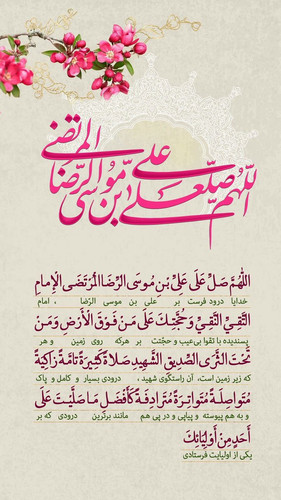 اللّهمّ صلّ علی علی بن موسی الرّضا المرتضی
اَللّهُمَّ صَلِّ عَلی عَلِیِّ بْنِ مُوسَی الرِّضَا الْمُرْتَضَی الْإِمامِ
خدایا درود فرست بر علی بن موسی الرّضا ، امام
التَّقِیِّ النَّقِیِّ وَحُجَّتِکَ عَلی مَنْ فَوْقَ الْأَرْضِ وَمَنْ
پسندیده با تقوا بی‌عیب و حجّتت بر هرکه روی زمین و هر
تَحْتَ الثَّری الصِّدّیقِ الشَّهیدِ صَلاةً کَثیرَةً تامَّةً زاکِیَةً
که زیر زمین است، آن راستگوی شهید ، درودی بسیار و کامل و پاک
مُتَواصِلَةً مُتَواتِرَةً مُتَرادِفَةً کَأَفْضَلِ ما صَلَّیْتَ عَلی
و به هم پیوسته و پیاپی و در پی هم مانند برگرین درودی که بر
أَحَدٍ مِنْ أَوْلِیائِکَ
یکی از اولیایت فرستادی